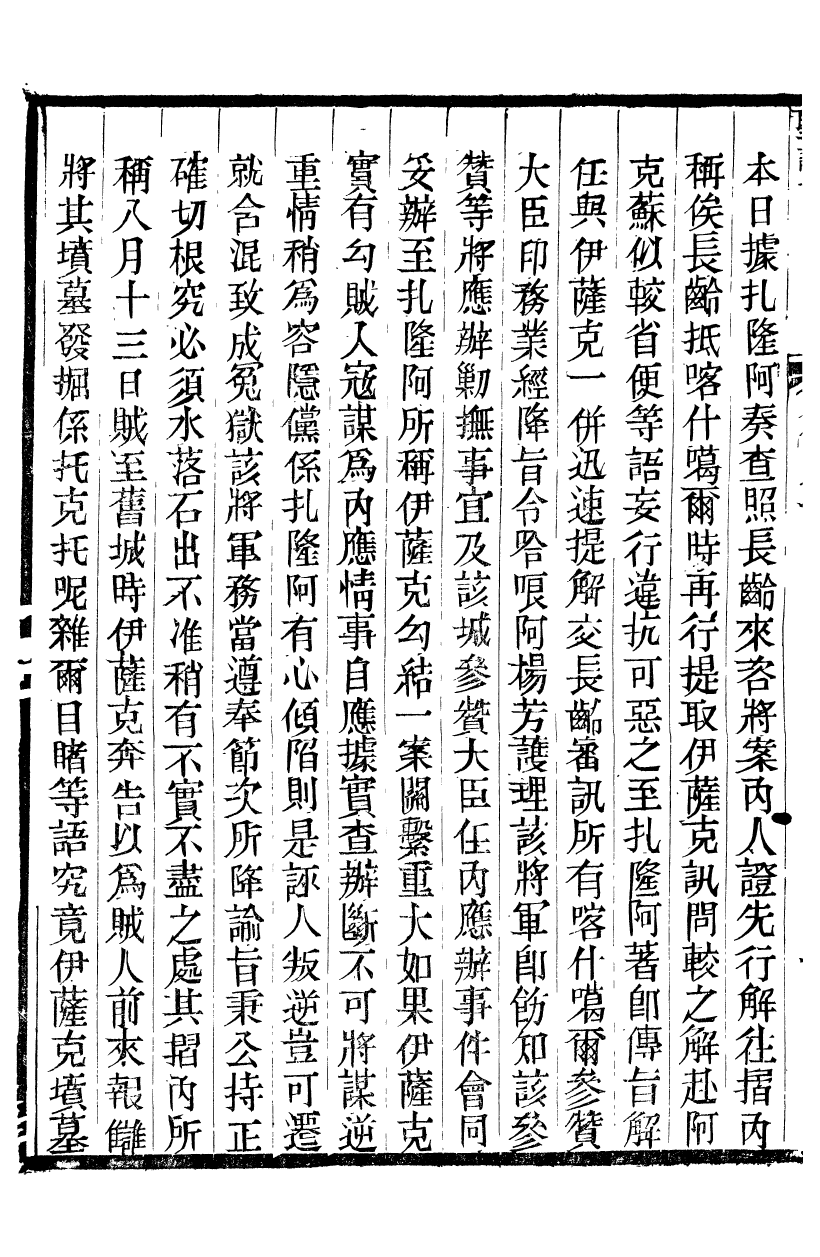 本日據扎隆阿奏查照長齡來咨將案內人證先行解往摺內
稱俟長齡抵喀什噶爾時再行提取伊薩克訊問較之解赴阿
克蘇似較省便等語妄行違抗可惡之至扎隆阿著卽傳旨解
任與伊薩克一併迅速提解交長齡審訊所有喀什噶爾參贊
大臣印務業經降旨令哈哴阿楊芳護理該將軍卽飭知該參
贊等將應辦勦撫事宜及該城參贊大臣任內應辦事件會同
妥辦至扎隆阿所稱伊薩克勾結一案關繫重大如果伊薩克
實有勾賊入寇謀爲內應情事自應據實查辦斷不可將謀逆
重情稍爲容隱儻係扎隆阿有心傾陷則是誣人叛逆豈可遷
就含混致成冤獄該將軍務當遵奉節次所降諭旨秉公持正
確切根究必須水落石出不准稍有不實不盡之處其摺內所
稱八月十三日賊至舊城時伊薩克奔告以爲賊人前來報讎
將其墳墓發掘係托克托呢雜爾目睹等語究竟伊薩克墳墓